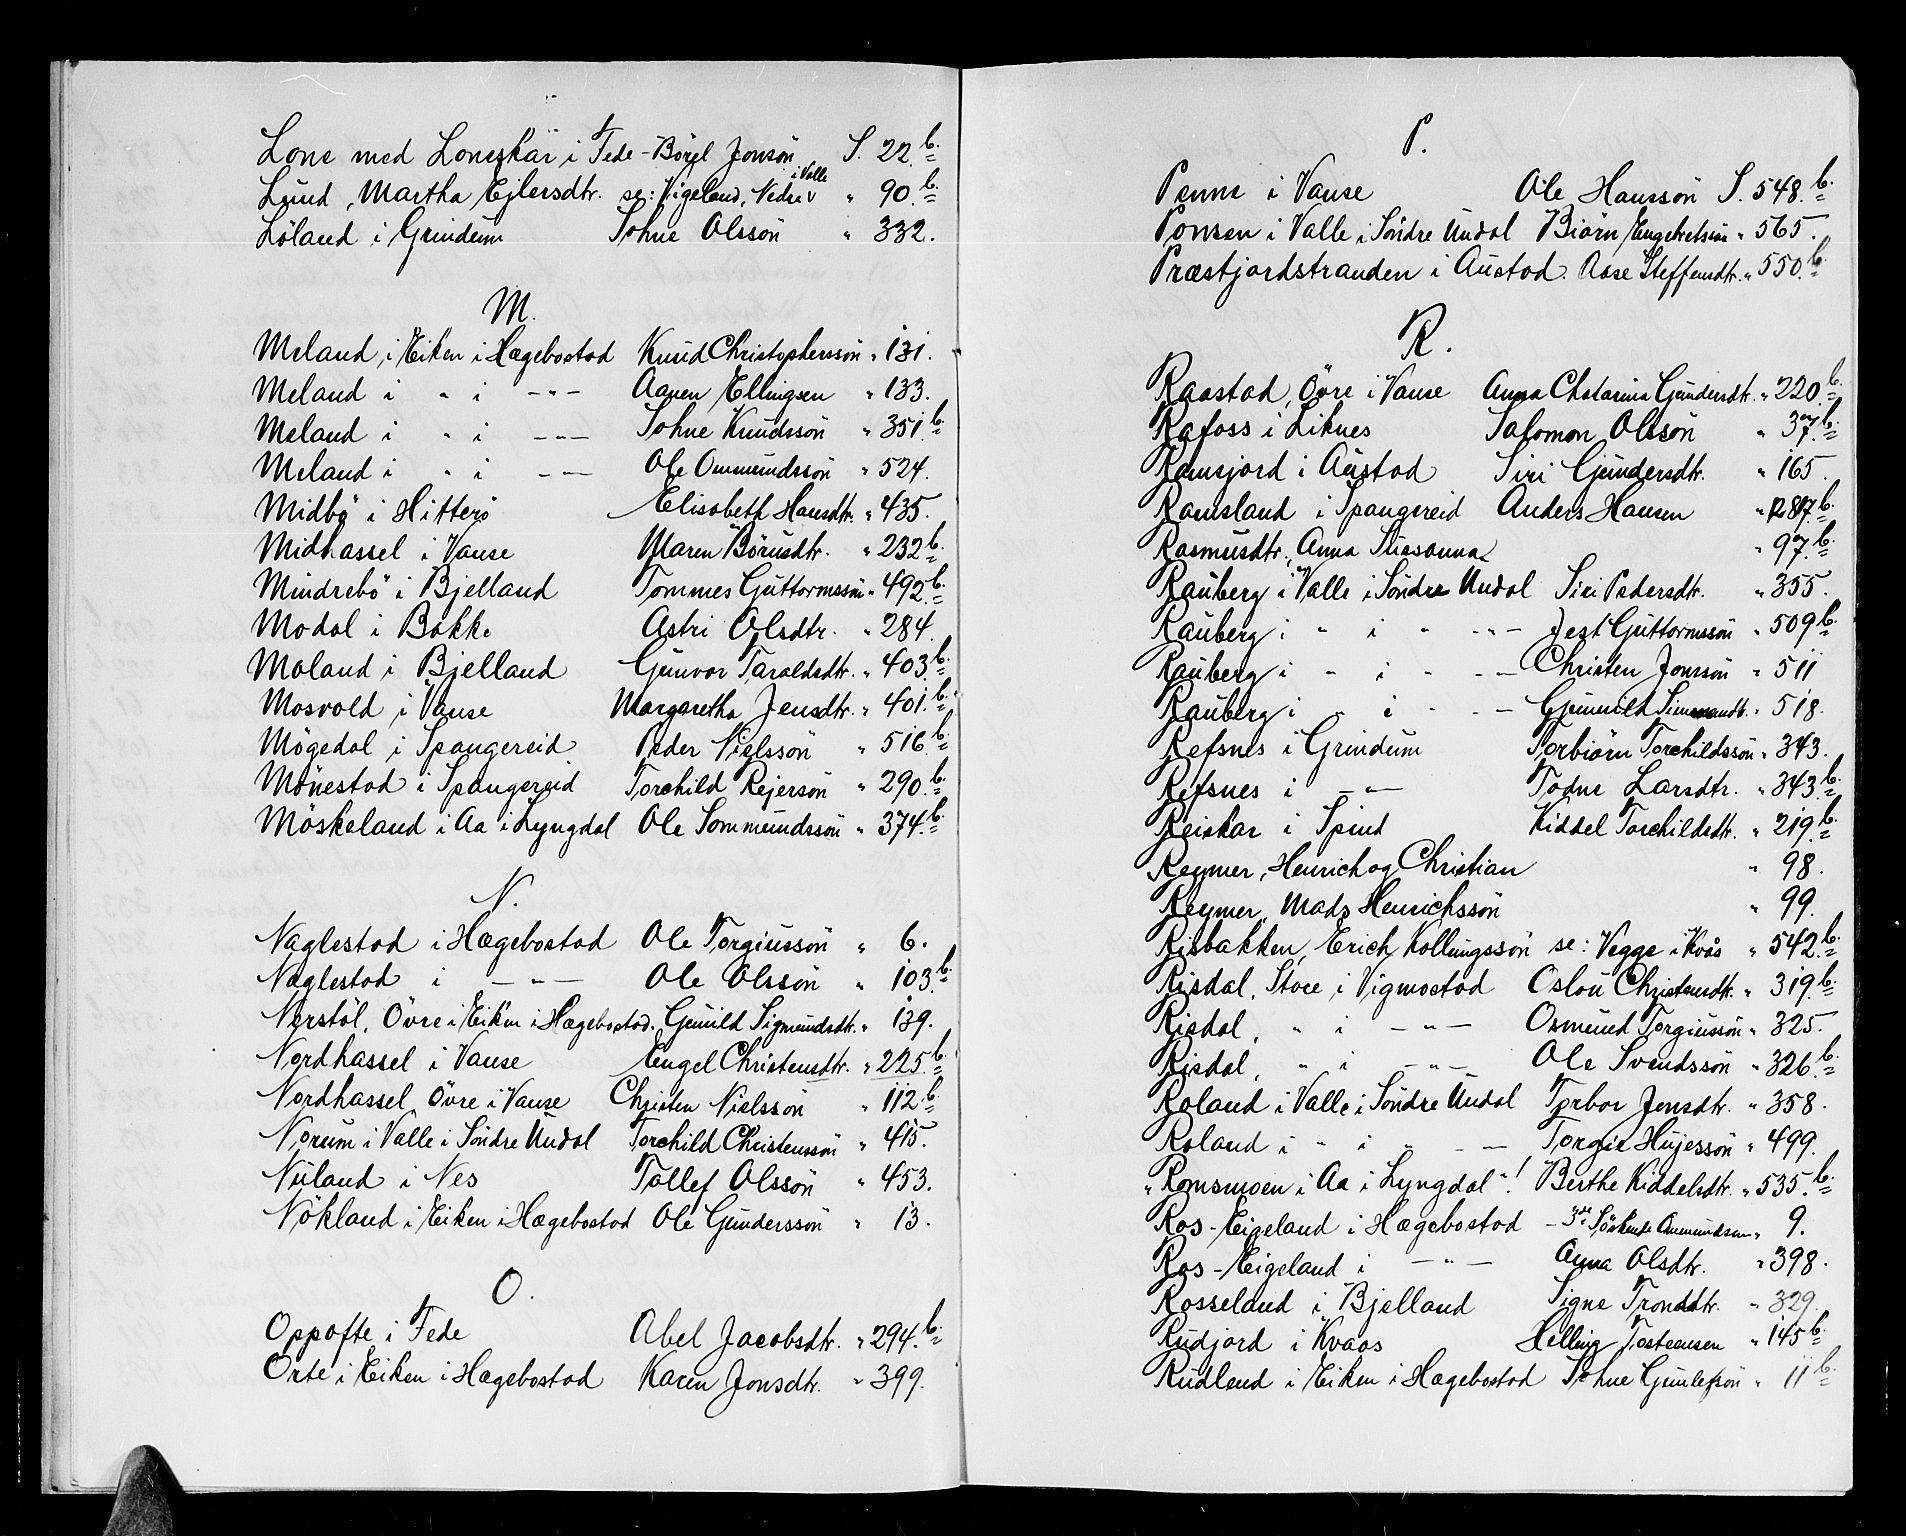 Lone med Loneskar i Fede - Börel Jonsön S. 22.b.
i Valle
Lund, Martha Ejlersdtr. se: Vigeland, Nedre v " 90.b.
Löland i Grindum Sohne Olssön " 332.
M.
Meland i Eiken i Hægebostad Knud Christopherssön " 131.
Meland i " i -"- Aanen Ellingsen " 133.
Meland i " i -"- Sohne Knudssön " 351.b.
Meland i " i -"- Ole Ommundssön " 524.
Midbö i Hitterö Elisabeth Hansdtr. " 435.
Midhassel i Vanse Maren Börusdtr. " 232.b.
Mindrebö i Bjelland Tommes Guttormssön " 492.b.
Modal i Bakke Astri Olsdtr. " 284.
Moland i Bjelland Gunvor Taraldsdtr. " 403.b.
Mosvold i Vanse Margaretha Jensdtr. " 401.b.
Mögedal i Spangereid Peder Nielssön " 516.b.
Mönestad i Spangereid Torchild Rejersön " 290.b.
Möskeland i Aa i Lyngdal Ole Sommundssön " 374.b.
N.
Naglestad i Hægebostad Ole Torgiussön " 6.
Naglestad i -"- Ole Olssön " 103.b.
Nerstöl, Övre i Eiken i Hægebostad. Gunild Sigmundsdtr. " 139.
Nordhassel i Vanse Engel Christensdtr. " 225.b.
Nordhassel Övre i Vanse Christen Nielssön " 112.b.
Norum i Valle i Söndre Undal Torchild Christenssön " 415.
Nuland i Nes Tollef Olssön " 453.
Nökland i Eiken i Hægebostad Ole Gunderssön " 13.
O.
Oppofte i Fede Abel Jacobsdtr. " 294.b.
Orte i Eiken i Hægebostad Karen Jonsdtr. " 399.
P.
Penne i Vanse Ole Hanssön S. 548.b.
Ponsen i Valle i Söndre Undal Biörn Engebretsön " 565.
Præstjordstranden i Austad. Aase Steffensdtr. " 550.b.
R.
Raastad, Övre i Vanse Anna Chatarina Gundersdtr. " 220.b.
Rafoss i Liknes Salomon Olssön " 37.b.
Ramsjord i Austad Siri Gundersdtr. " 165.
Ramsland i Spangereid Anders Hansen " 287.b.
Rasmusdtr., Anna Susanna " 97.b.
Rauberg i Valle i Söndre Undal Siri Pedersdtr. " 355.
Rauberg i " i " -"- Jest Guttormssön " 509.b.
Rauberg i " i " -"- Christen Jonssön " 511
Rauberg i " i " -"- Gunnild " 518.
Refsnes i Grindum Torbiörn Torchildssön " 343.
Refsnes i -"- Todne Larsdtr. " 343.b.
Reiskar i Spind Kiddel Torchildsdtr. " 219.b.
Reymer, Henrich og Christian " 98.
Reymer, Mads Henrichssön " 99.
Risbakken, Erich Kollungssön se: Vegge i Kvås " 542.b.
Risdal, Store i Vigmostad Oslou Christensdtr. " 319.b.
Risdal, " i -"- Osmund Torgiussön " 325.
Risdal, " i -"- Ole Svendssön " 326.b.
Roland i Valle i Söndre Undal Torbor Jensdtr. " 358.
Roland i " i " -"- Torgie Hujessön " 499.
" Romsmoen i Aa i Lyngdal "! Berthe Kiddelsdtr. " 535.b.
Ros-Eigeland i Hægebostad - 3de Söskende Ommundsen " 9.
Ros-Eigeland i -"- Anna Olsdtr. " 398.
Rosseland i Bjelland Signe Trondsdtr. " 329.
Rudjord i Kvaas Helling Tosteensen " 145.b.
Rudlend i Eiken i Hægebostad Sohne Gunlefsön " 11.b.